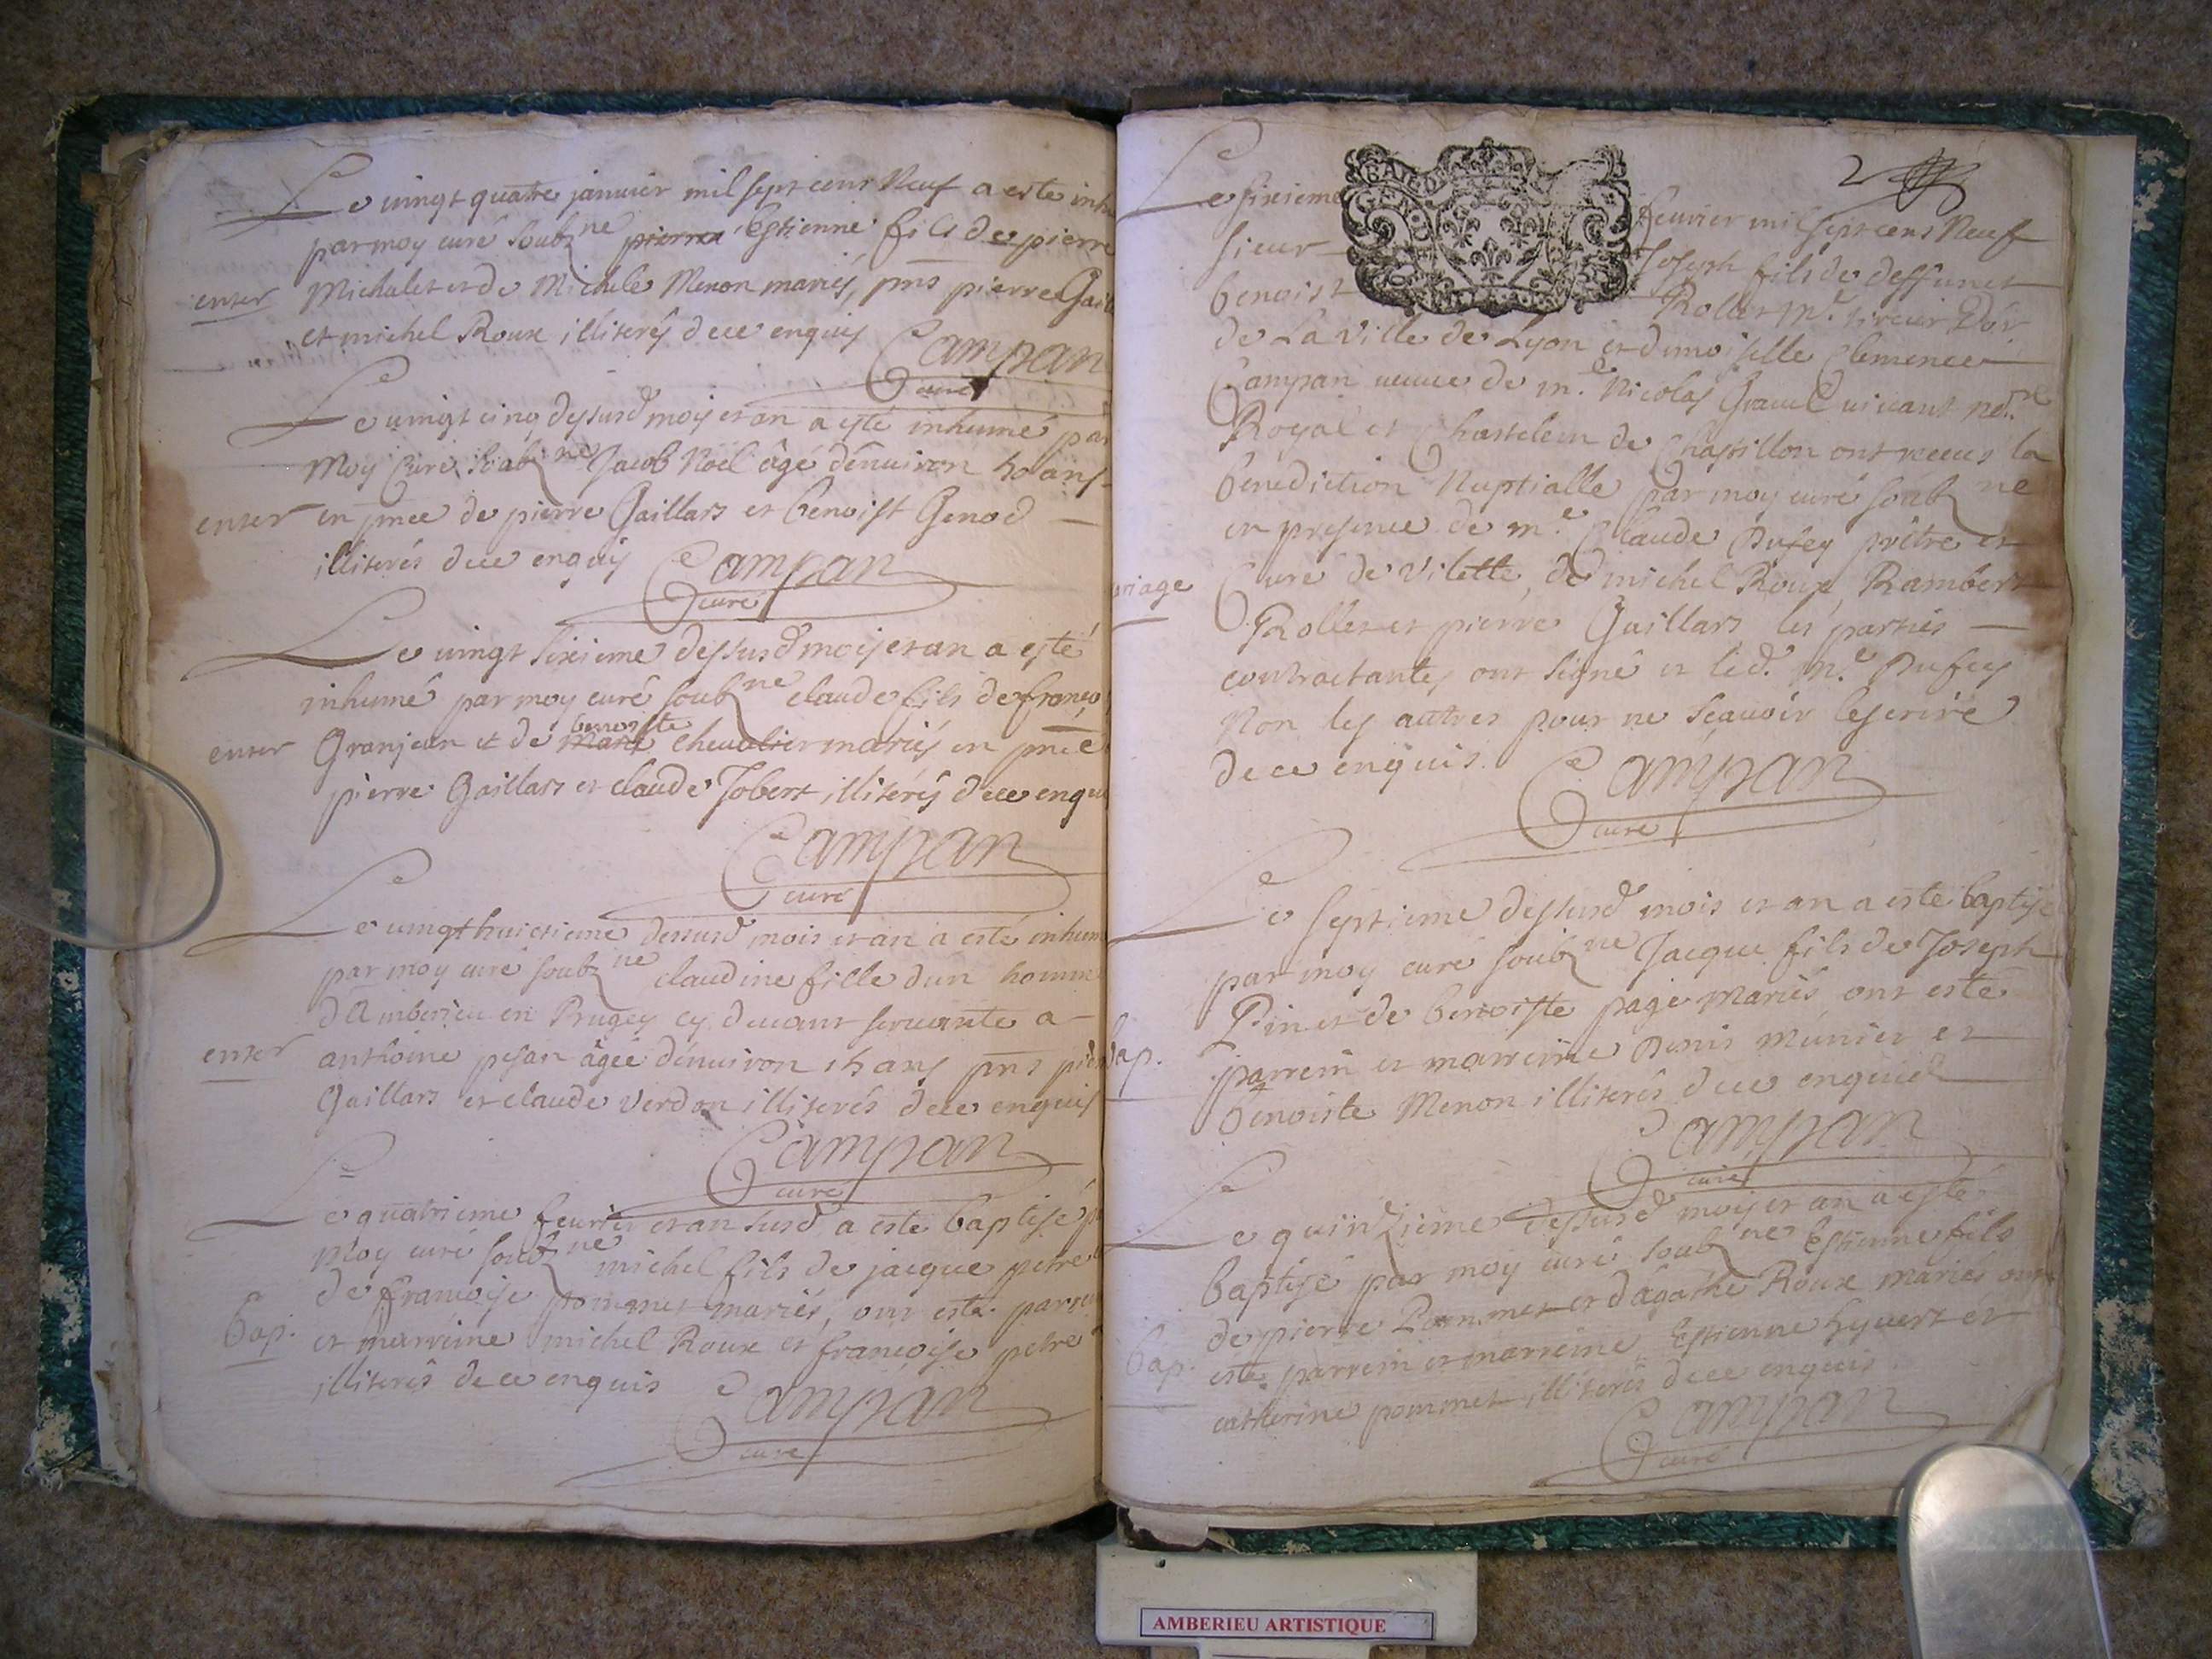 Le vingt quatre janvier mil sept cens Neuf a este inh
par moy curé soubzne pierre Estienne fils de pierre
enter Michalet et de Michele Menon mariés, pns pierre Gail
et michel Roux illiterés de ce enquis
Campan
curé
Le vingt cinq dessusd mois et an a esté inhumé par
Moy Curé soubzne Jacob Noël âgé dénuiron 40 ans
enter en pnce de pierre Gaillars et benoist Genod
illiterés de ce enquis Campan
curé
Le vingt sixieme dessusd mois et an a esté
inhumé par moy curé soubzne claude fils de franço
benoiste
enter Granjean et de Marie chevalier mariés en pnce
pierre Gaillars et claude Jobert illiterés de ce enqui
Campan
curé
Le vingt huictieme dessusd mois et an a esté inhum
par moy curé soubzne claudine fille d'un homme
d'Amberieu en Bugey cy devant servante a
enter anthoine pesan âgée dénuiron 15 ans pns pier
Gaillars et claude Verdon illiterés de ce enquis
Campan
curé
Le quatrieme feurier et an susd a este baptisé p
Moy curé soubzne michel fils de jacque petre
de françoise pommet mariés, ont esté parrein
Bap. et marreine michel Roux et françoise petre
illiterés de ce enquis Campan
curé
2
Le sixieme feurier mil sept cens Neuf
sieur Joseph fils de deffunct
benoist Rollet Mr. tireur D'or
de La ville de Lyon et demoiselle Clemence
Campan veuve de me. Nicolas Gravel vivant not.re
Royal et Chastelein de Chastillon ont receus la
benediction Nuptialle par moy curé soubzne
en presence de me. Claude Dufey prêtre et
ariage Curé de Vilette, de michel Roux, Rambert
Rollet et pierre Gaillars les parties
contractantes ont signé et led. me. Dufey
Non les autres pour ne sçavoir lescrire
de ce enquis. Campan
curé
Le septieme dessusd mois et an a este baptisé
par moy curé soubzne Jacque fils de Joseph
Pin et de benoiste page Mariés ont este
Bap. parrein et marreine Denis Munier et
benoiste Menon illiterés de ce enquid
Campan
curé
Le quinzieme dessusd mois et an a esté
baptisé par moy curé soubzne Estienne fils
de pierre Pommet et d'agathe Roux mariés ont
Bap. esté parrein et marreine Estienne hyvert et
catherine pommet illiterés de ce enquis
Campan
curé
AMBERIEU ARTISTIQUE